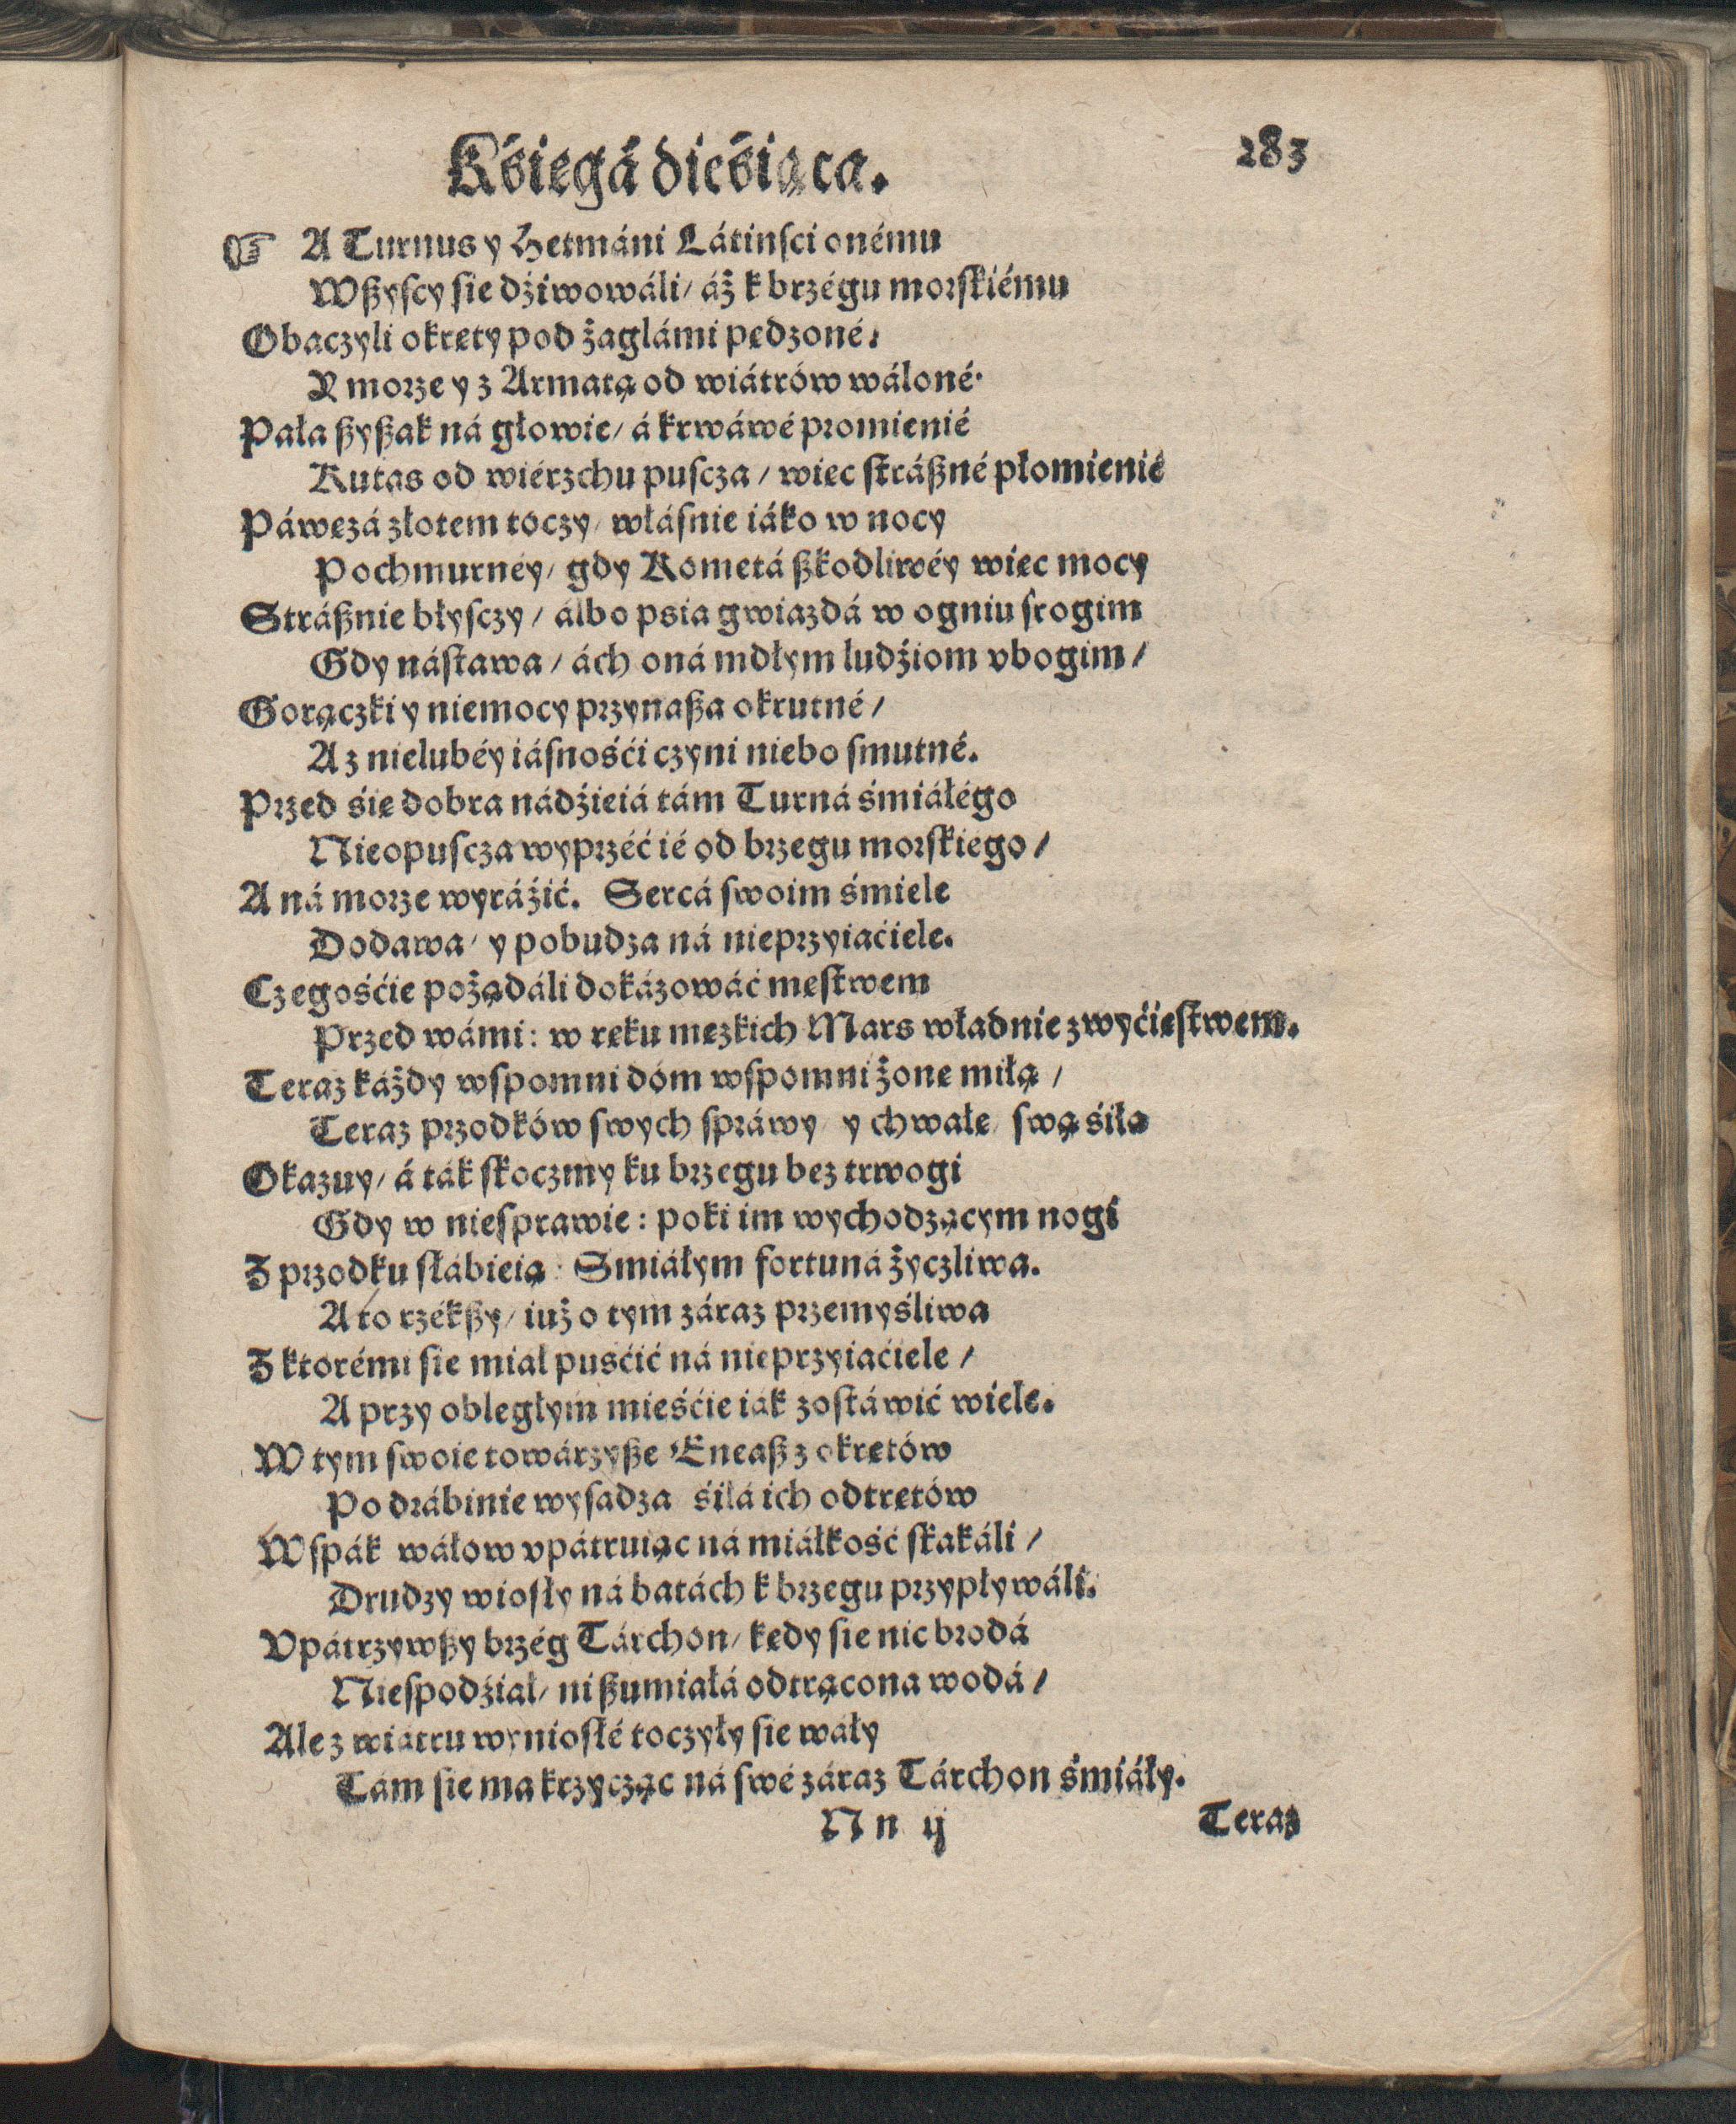 Kśięgá dieśiąca.
283
☞ A Turnus y Hetmáni Látinſci onému
Wßyſcy ſie dźiwowáli/ áż k brzégu morſkiému
Obaczyli okręty pod żaglámi pędzoné/
Y morze y z Armatą od wiátrów wáloné·
Pała ßyßak ná głowie/ á krwáwé promienié
Kutas od wiérzchu puſcza/ wiec ſtráßné płomienié
Páwęzá złotem toczy/ właſnie iáko w nocy
Pochmurnéy/ gdy Kometá ßkodliwéy wiec mocy
Stráßnie błyſczy/ álbo psia gwiazdá w ogniu ſrogim
Gdy náſtawa/ ách oná mdłym ludźiom vbogim/
Gorączki y niemocy przynaßa okrutné/
A z nielubéy iáſnośći czyni niebo ſmutné.
Przed śię dobra nádźieiá tám Turná śmiáłégo
Nieopuſcza wyprzéć ié od brzegu morſkiego/
A ná morze wyráźić. Sercá ſwoim śmiele
Dodawa/ y pobudza ná nieprzyiaćiele.
Czegośćie pożądáli dokázowáć męſtwem
Przed wámi: w ręku męzkich Mars władnie zwyćięſtwem.
Teraz káżdy wſpomni dóm wſpomni żonę miłą/
Teraz przodków ſwych ſpráwy/ y chwałę/ ſwą śiłą
Okazuy/ á ták ſkoczmy ku brzegu bez trwogi
Gdy w nieſprawie: poki im wychodzącym nogi
Z przodku ſłábieią: Smiáłym fortuná życzliwa.
A to rzékßy/ iuż o tym záraz przemyśliwa
Z ktorémi ſie miał puśćić ná nieprzyiaćiele/
A przy obległym mieśćie iák zoſtáwić wiele.
W tym ſwoie towárzyße Eneaß z okrętów
Po drábinie wyſadza śiłá ich odtrętów
Wſpák wáłow vpátruiąc ná miáłkość ſkakáli/
Drudzy wioſły ná batách k brzegu przypływáli.
Vpátrzywßy brzég Tárchon/ kędy ſie nic brodá
Nieſpodźiał/ ni ßumiałá odtrącona wodá/
Ale z wiatru wynioſłé toczyły ſie wáły
Tám ſie ma krzycząc ná ſwé záraz Tárchon śmiáły.
N n ij
Teraz